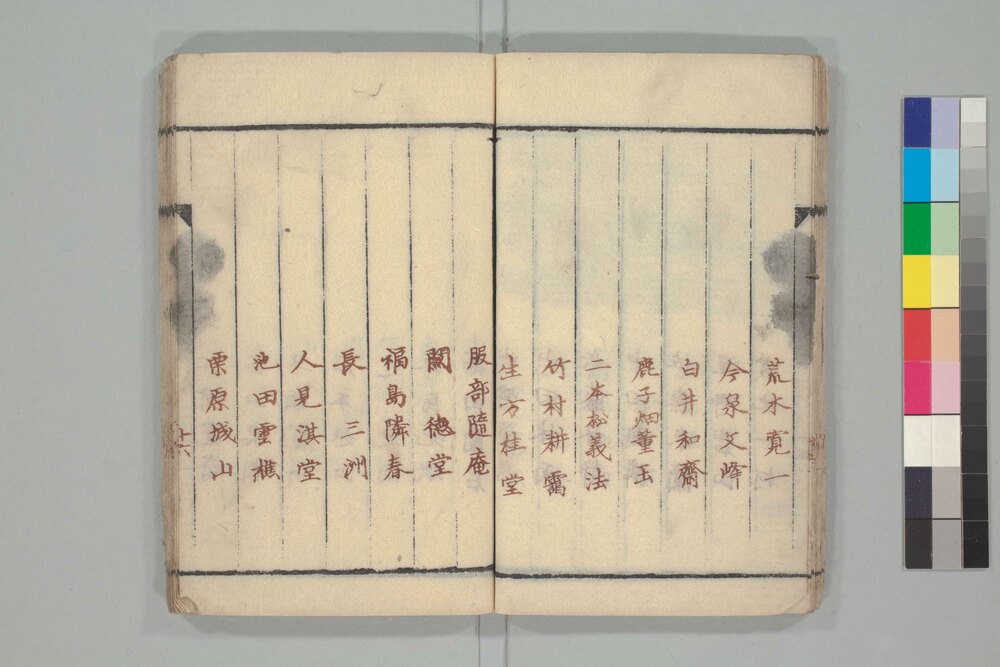 荒木寛一
今泉文峰
白井和齋
鹿子畑董玉
二本松義法
竹村耕靄
生方桂堂
服部隨庵
関徳堂
福島隣春
長三洲
人見淇堂
池田雲樵
栗原城山
十六